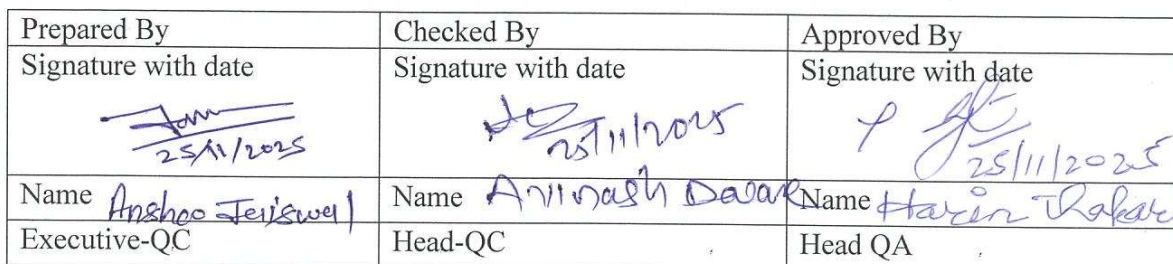 Prepared By
Checked By
Approved By
Signature with date
Signature with date
Signature with date
25/11/2025
25/11/2025
25/11/2025
Name Anshoo Jaiswal
Name Avinash Darak
Name Harin Thakar
Executive-QC
Head-QC
Head QA